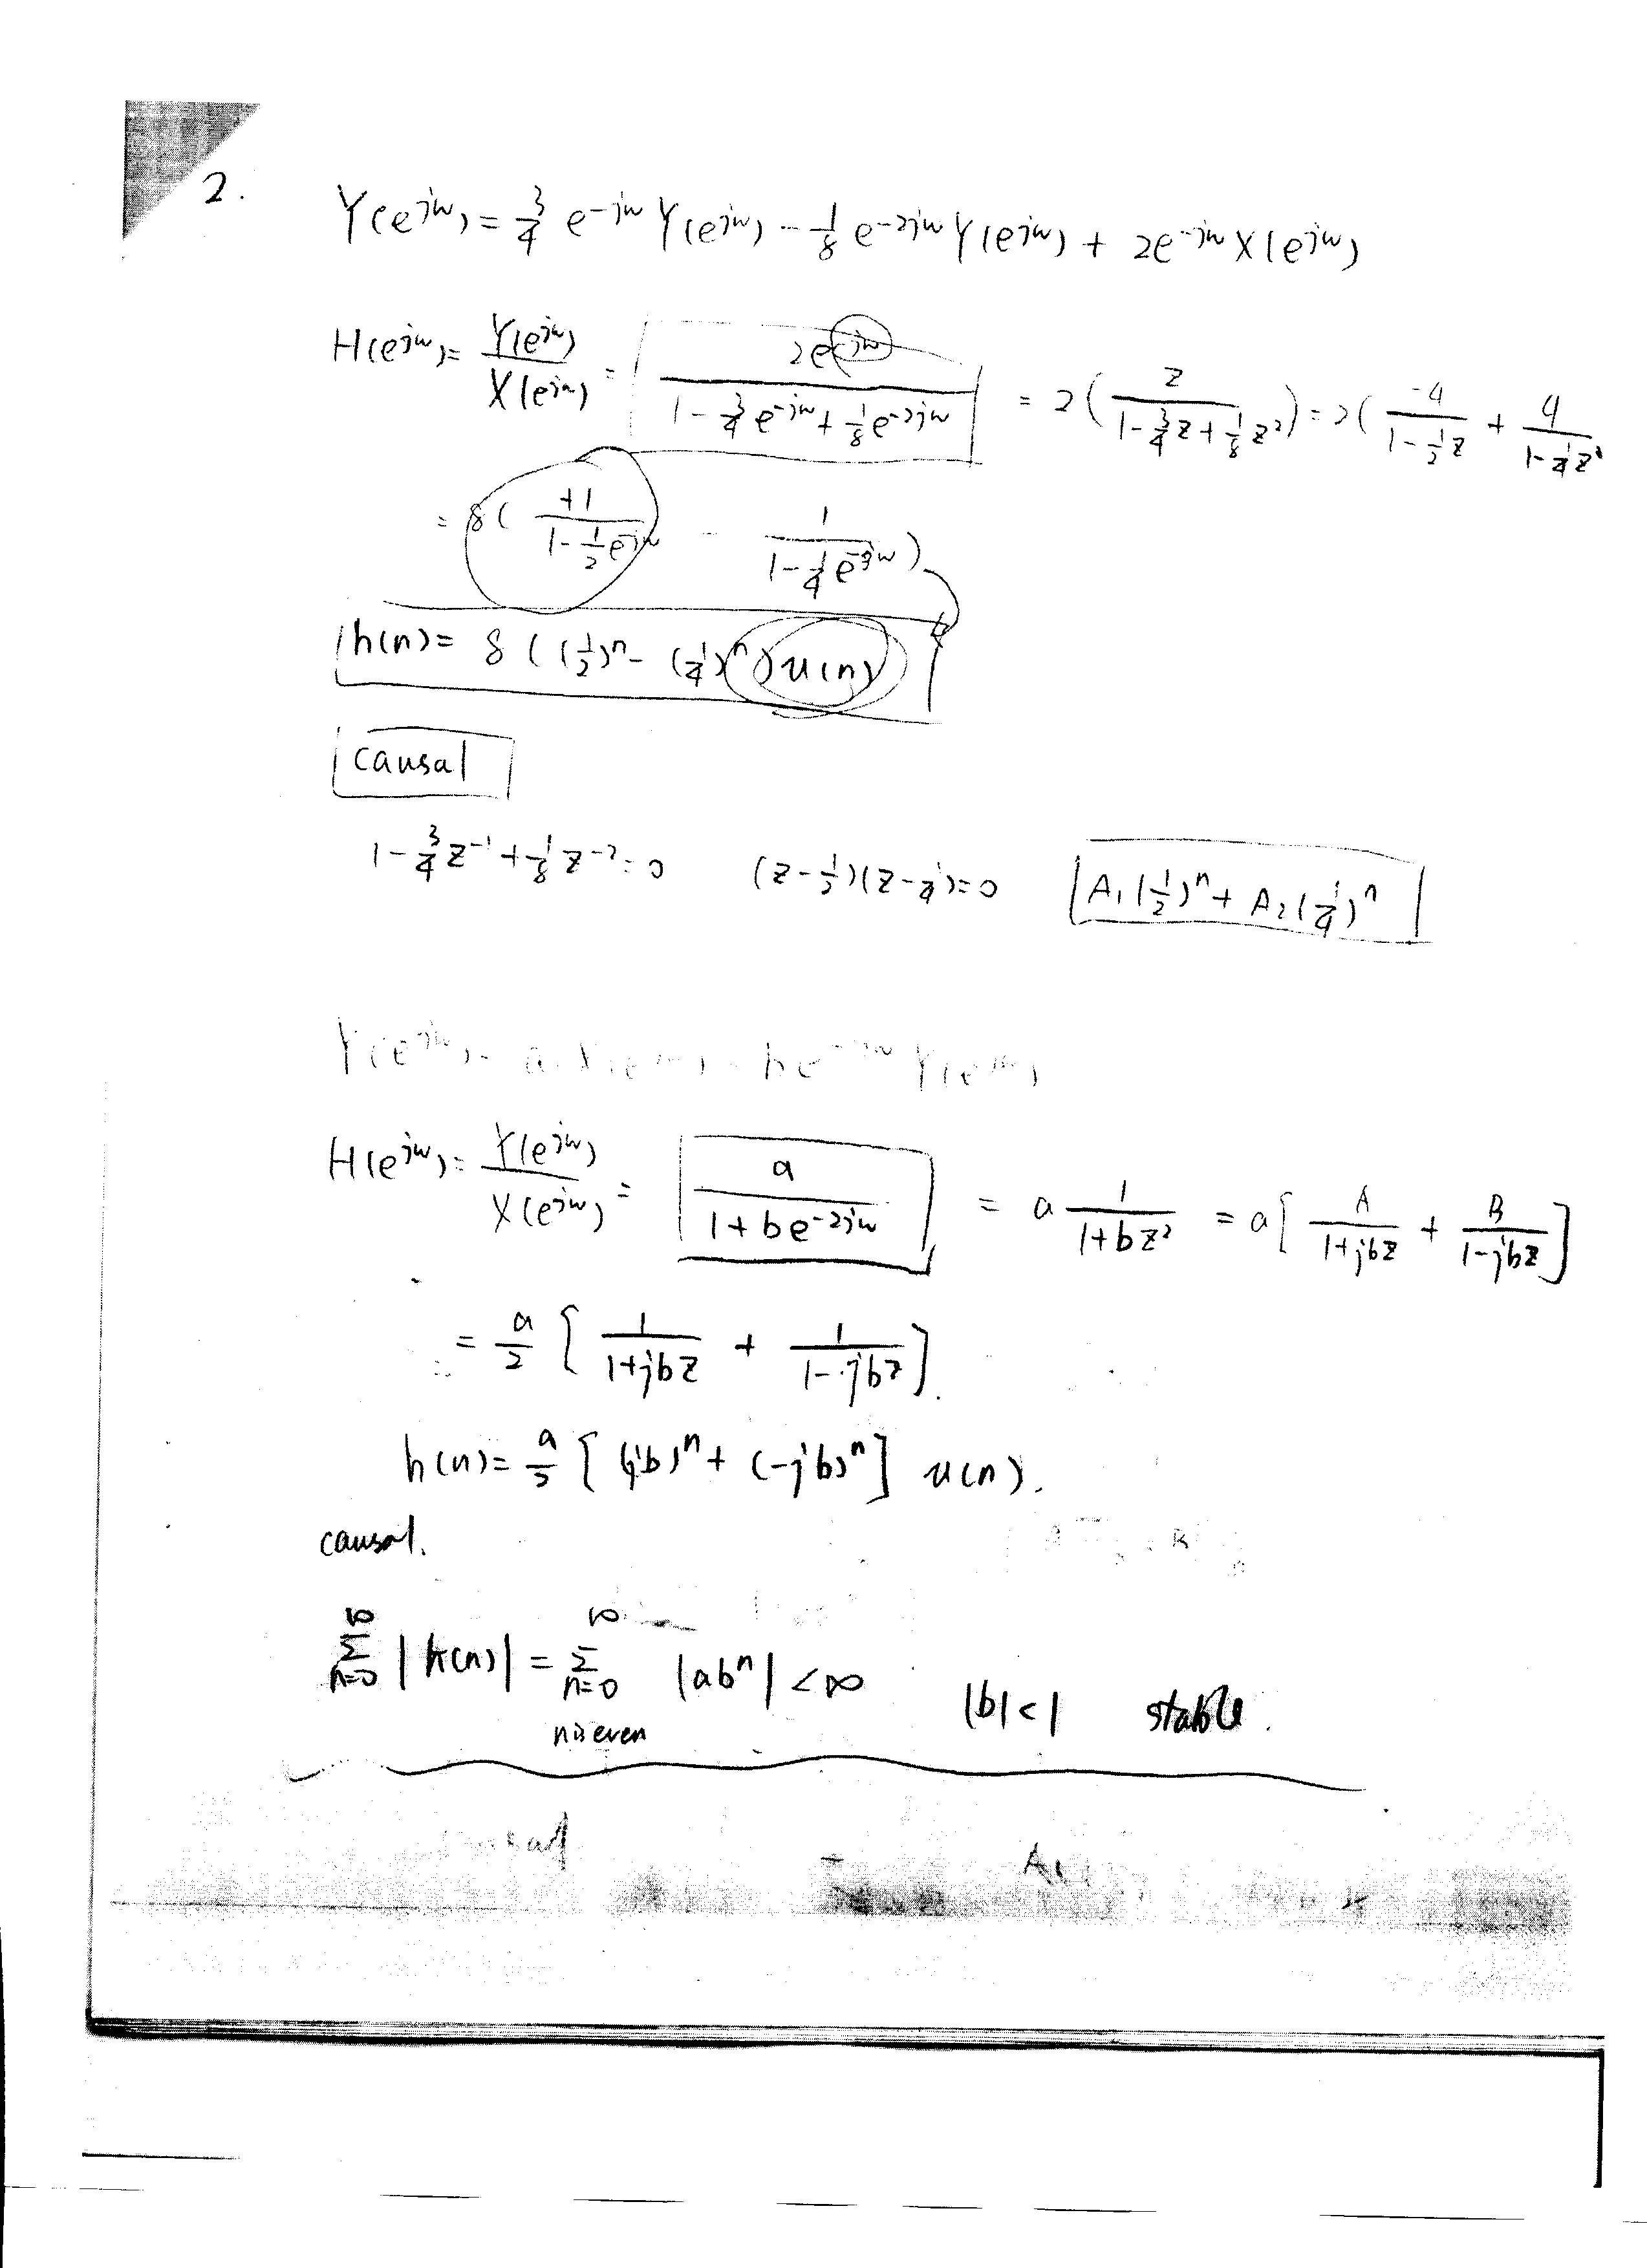 2.
Y(e^jw) = 3/4 e^-jw Y(e^jw) - 1/8 e^-2jw Y(e^jw) + 2e^-jw X(e^jw)
H(e^jw) = Y(e^jw)/X(e^jw) = 2e^-jw / (1 - 3/4 e^-jw + 1/8 e^-2jw) = 2( z / (1 - 3/4 z + 1/8 z²) ) = 2( -4 / (1 - 1/2 z) + 4 / (1 - 1/4 z)
= 8( +1 / (1 - 1/2 e^-jw) - 1 / (1 - 1/4 e^-jw) )
h(n) = 8 ( (1/2)^n - (1/4)^n ) u(n)
causal
1 - 3/4 z^-1 + 1/8 z^-2 = 0 (z - 1/2)(z - 1/4) = 0 A₁(1/2)^n + A₂(1/4)^n
H(e^jw) = Y(e^jw)/X(e^jw) = a / (1 + be^-2jw) = a 1 / (1 + bz²) = a[ A / (1 + jbz) + B / (1 - jbz) ]
= a/2 [ 1 / (1 + jbz) + 1 / (1 - jbz) ].
h(n) = a/2 [ (jb)^n + (-jb)^n ] u(n).
causal.
∞ Σ n=0 |h(n)| = ∞ Σ n=0 |ab^n| < ∞ |b| < 1 stable.
n is even
A₁